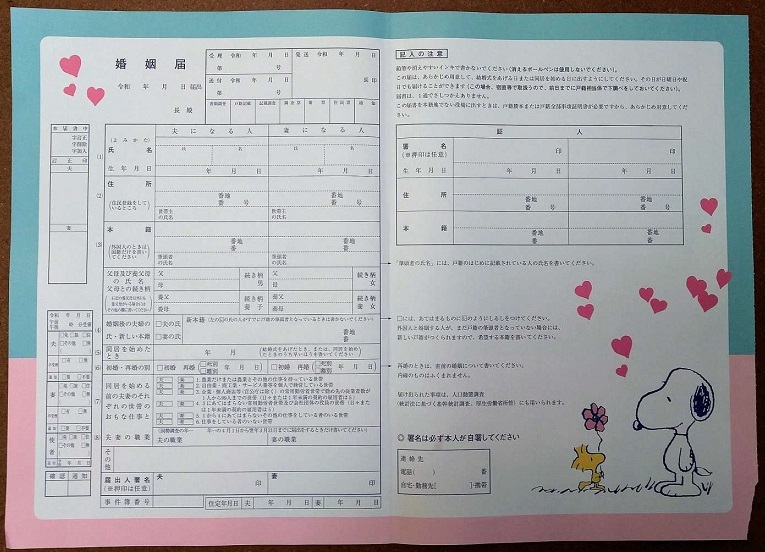 婚姻届
令和　年　月　日届出
長 殿
受理 令和　年　月　日
発送 令和　年　月　日
第　号
送付 令和　年　月　日
第　号
長印
書類調査 戸籍記載 記載調査 調査票 附票 住民票 通知
本届書中
字訂正
字削除
字加入
訂正印
夫
妻
夫になる人
妻になる人
(1)
(よみかた)
氏名
氏 名 氏 名
生年月日
年　月　日
年　月　日
(2)
住所
(住民登録をして
いるところ)
番地
番　号
番地
番　号
世帯主
の氏名
世帯主
の氏名
(3)
本籍
(外国人のときは
国籍だけを書い
てください)
番地
番
番地
番
筆頭者
の氏名
筆頭者
の氏名
父母及び養父母
の氏名
父母との続き柄
父
母
続き柄
男
父
母
続き柄
女
養父
養母
続き柄
養子
養父
養母
続き柄
養女
(4)
婚姻後の夫婦の
氏・新しい本籍
□夫の氏
□妻の氏
新本籍（左の☑の氏の人がすでに戸籍の筆頭者となっているときは書かないでください）
番地
番
(5)
同居を始めた
とき
年　月
(結婚式をあげたとき、または、同居を始め
たときのうち早いほうを書いてください)
(6)
初婚・再婚の別
□初婚 再婚
□死別
□離別
□初婚 再婚
□死別
□離別
(7)
同居を始める
前の夫妻のそ
れぞれの世帯
のおもな仕事と
夫 妻 1.農業だけまたは農業とその他の仕事を持っている世帯
夫 妻 2.自由業・商工業・サービス業等を個人で経営している世帯
夫 妻 3.企業・個人商店等（官公庁は除く）の常用勤労者世帯で勤め先の従業者数が
1人から99人までの世帯（日々または1年未満の契約の雇用者は5）
夫 妻 4.3にあてはまらない常用勤労者世帯及び会社団体の役員の世帯（日々また
は1年未満の契約の雇用者は5）
夫 妻 5.1から4にあてはまらないその他の仕事をしている者のいる世帯
夫 妻 6.仕事をしている者のいない世帯
(8)
夫妻の職業
夫の職業
妻の職業
その他
届出人署名
(※押印は任意)
夫
印
妻
印
事件簿番号
住定年月日 夫 年　月　日 妻 年　月　日
確認 通知
記入の注意
鉛筆や消えやすいインキで書かないでください(消えるボールペンは使用しないでください)。
この届は、あらかじめ用意して、結婚式をあげる日または同居を始める日に出すようにしてください。その日が日曜日や祝
日でも届けることができます(この場合、宿直等で取扱うので、前日までに戸籍担当係で下調べをしておいてください)。
届書は、1通でさしつかえありません。
この届書を本籍地でない役場に出すときは、戸籍謄本または戸籍全部事項証明書が必要ですから、あらかじめ用意してくださ
い。
証人
署名
(※押印は任意)
印
印
生年月日
年　月　日
年　月　日
住所
番地
番　号
番地
番　号
本籍
番地
番
番地
番
「筆頭者の氏名」には、戸籍のはじめに記載されている人の氏名を書いてください。
□には、あてはまるものに☑のようにしるしをつけてください。
外国人と婚姻する人が、まだ戸籍の筆頭者となっていない場合には、
新しい戸籍がつくられますので、希望する本籍を書いてください。
再婚のときは、直前の婚姻について書いてください。
内縁のものはふくまれません。
届け出られた事項は、人口動態調査
(統計法に基づく基幹統計調査、厚生労働省所管)にも用いられます。
◎ 署名は必ず本人が自署してください
連絡先
電話(　)　番
自宅・勤務先[　]・携帯